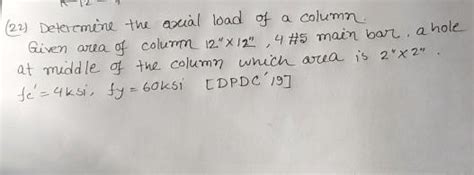 (22) Determine the axial load of a column.
Given area of column 12"x12", 4 #5 main bar. a hole
at middle of the column which area is 2"x2".
fc' = 4ksi, fy = 60ksi [DPDC'19]